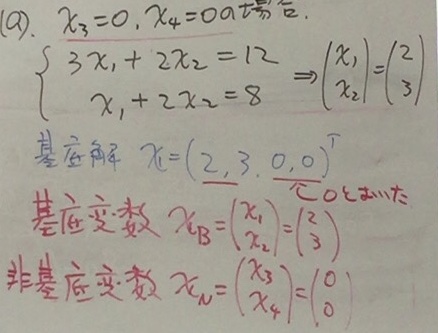 (a). x₃=0, x₄=0の場合.
{ 3x₁+2x₂=12
x₁+2x₂=8 ⇒ (x₁ x₂)=(2 3)
基底解 x=(2, 3, 0, 0)ᵀ
て0とおいた
基底変数 x_B=(x₁ x₂)=(2 3)
非基底変数 x_N=(x₃ x₄)=(0 0)